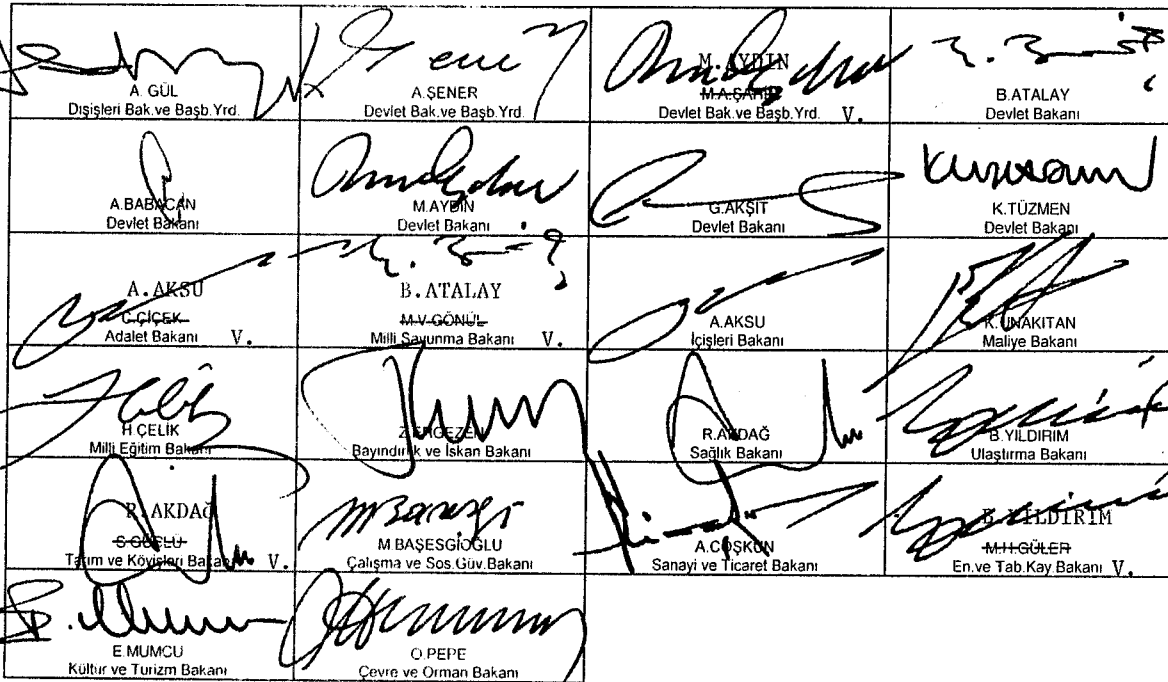 A. GÜL
Dışişleri Bak.ve Başb.Yrd.
A.ŞENER
Devlet Bak.ve Başb.Yrd.
M.AYDIN
M.A.ŞAHİN
Devlet Bak.ve Başb.Yrd. V.
B.ATALAY
Devlet Bakanı
A.BABACAN
Devlet Bakanı
M.AYDIN
Devlet Bakanı
G.AKŞİT
Devlet Bakanı
K.TÜZMEN
Devlet Bakanı
A.AKSU
C.ÇİÇEK
Adalet Bakanı V.
B.ATALAY
M.V.GÖNÜL
Milli Savunma Bakanı V.
A.AKSU
İçişleri Bakanı
K.UNAKITAN
Maliye Bakanı
H.ÇELİK
Milli Eğitim Bakanı
Z.ERGEZEN
Bayındırlık ve İskan Bakanı
R.AKDAĞ
Sağlık Bakanı
B.YILDIRIM
Ulaştırma Bakanı
R.AKDAĞ
S.GÜÇLÜ
Tarım ve Köyişleri Bakanı V.
M.BAŞESGİOĞLU
Çalışma ve Sos.Güv.Bakanı
A.COŞKUN
Sanayi ve Ticaret Bakanı
B.YILDIRIM
M.H.GÜLER
En.ve Tab.Kay.Bakanı V.
E.MUMCU
Kültür ve Turizm Bakanı
O.PEPE
Çevre ve Orman Bakanı